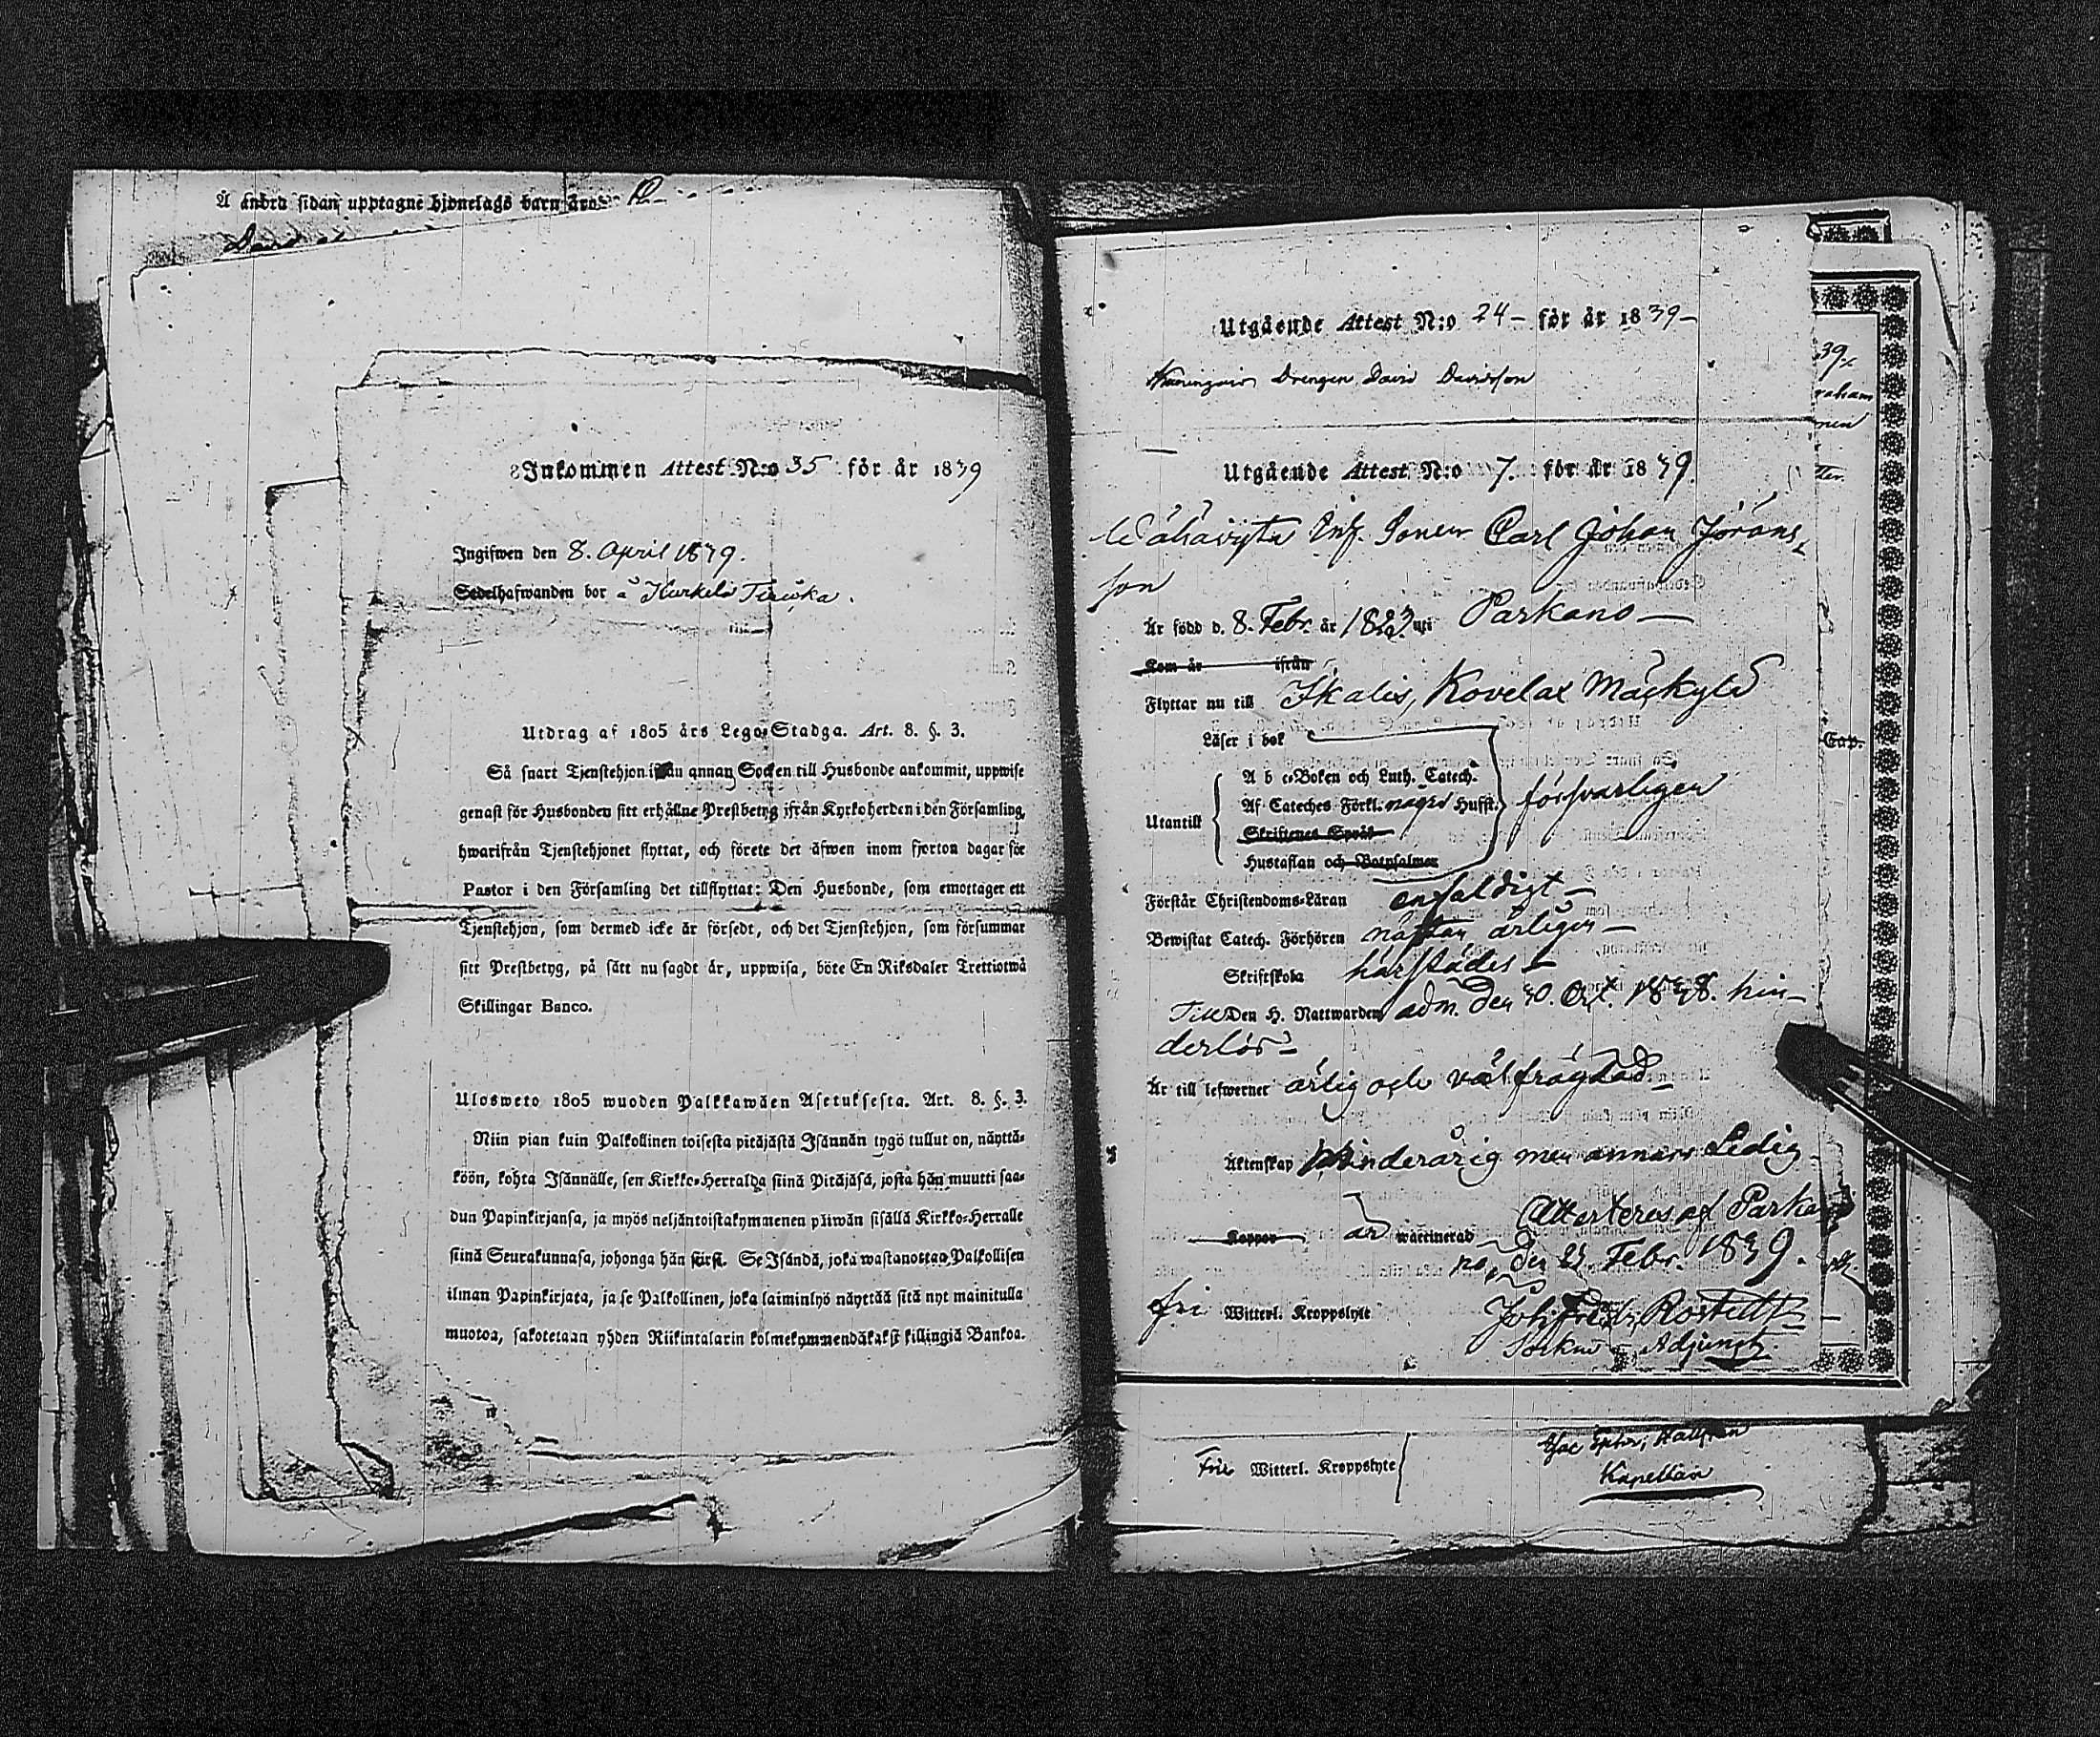 Å andra sidan upptagne hjonelags barn äro
Inkommen Attest N:o 35 för år 1839
Ingifwen den 8. April 1839.
Sedelhafwanden bor å
Utdrag af 1805 års Lego-Stadga. Art. 8. §. 3.
Så snart Tjenstehjon ifrån annan Socken till Husbonde ankommit, uppwise
genast för Husbonden sitt erhållne Prestbetyg ifrån Kyrkoherden i den Församling,
hwarifrån Tjenstehjonet flyttat, och förete det äfwen inom fjorton dagar för
Pastor i den Församling det tillflyttat: Den Husbonde, som emottager ett
Tjenstehjon, som dermed icke är försedt, och det Tjenstehjon, som försummar
sitt Prestbetyg, på sätt nu sagdt är, uppwisa, böte En Riksdaler Trettiotwå
Skillingar Banco.
Ulosweto 1805 wuoden Palkkawäen Asetuksesta. Art. 8. §. 3.
Niin pian kuin Palkollinen toisesta pitäjästä Isännän tygö tullut on, näyttä-
köön, kohta Isännälle, sen Kirkko-Herralda siinä Pitäjäsä, josta hän muutti saa-
dun Papinkirjansa, ja myös neljäntoistakymmenen päiwän sisällä Kirkko-Herralle
siinä Seurakunnasa, johonga hän siirsi. Se Isändä, joka wastanottaa Palkollisen
ilman Papinkirjata, ja se Palkollinen, joka laiminlyö näyttää sitä nyt mainitulla
muotoa, sakotetaan yhden Riikintalarin kolmekymmendäkaksi killingiä Bankoa.
Utgående Attest N:o 24 – för år 1839 –
Drengen David Davidsson
Utgående Attest N:o 7. för år 1839.
Inh. Sonen Carl Johan Jörans-
son
Är född d. 8. Febr. år 1823 uti Parkano –
Kom år ifrån
Flyttar nu till Ikalis, Kovelax
Läser i bok
A b c-Boken och Luth. Catech.
Af Cateches Förkl. några Hufst. försvarligen
Utantill
Skriftenes Språk
Hustaflan och Botpsalmer
Förstår Christendoms-Läran enfaldigt –
Bewistat Catech. Förhören nästan årligen –
Skriftskola härstädes –
Till Den H. Nattwarden adm. den 30. Oct. 1838. hin-
derlös –
Är till lefwernet ärlig och väl frägdad –
Äktenskap Minderårig men annars Ledig
Attesteras af Parka-
Koppor är waccinerad
no, den Febr. 1839.
fri Witterl. Kroppslyte
Joh Fredr Rostedt
Socken-Adjunct.
39.
raham
nen
Cap.
Fri Witterl. Kroppslyte
Kapellan